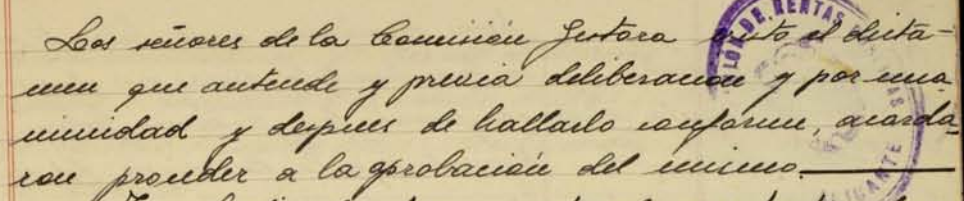 Los señores de la Comisión Gestora visto el dicta-
men que antecede y previa deliberación y por una
nimidad y despues de hallarlo conforme, acorda
ron proceder a la aprobación del mismo.
DE RENTAS
ALICANTE